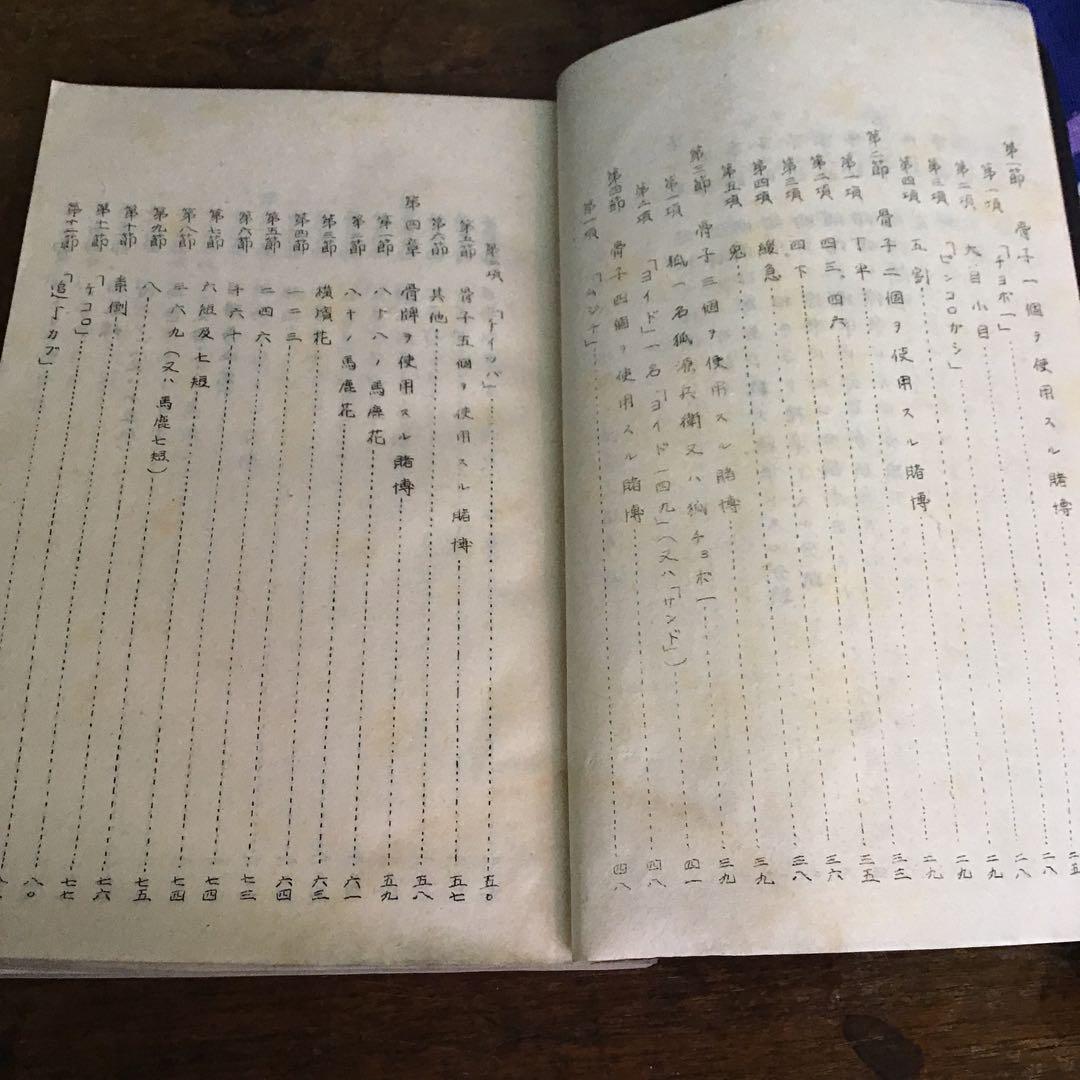 第一節 骨子一個ヲ使用スル賭博 二五
第一項 「チヨボ一」 二八
第二項 大目小目 二八
第三項 「ピンコロガシ」 二九
第四項 五割 二九
第二節 骨子二個ヲ使用スル賭博 二九
第一項 丁半 三三
第二項 四三、四六 三五
第三項 四下 三六
第四項 緩急 三八
第五項 鬼 三九
第三節 骨子三個ヲ使用スル賭博 三九
第一項 狐一名狐源兵衛又ハ狐チヨボ一 四一
第二項 「ヨイド」一名「ヨイド一四九」(又ハ「サンド」) 四八
第四節 骨子四個ヲ使用スル賭博 四八
第一項
第二項 「チイツパ」 五〇
第五節 骨子五個ヲ使用スル賭博 五七
第六節 其他 五八
第四章 骨牌ヲ使用スル賭博 五九
第一節 八十八ノ馬鹿花 六一
第二節 八十ノ馬鹿花
第三節 横濱花 六三
第四節 一二三 六四
第五節 二四六
第六節 千六十 七三
第七節 六短及七短 七四
第八節 三六九(又ハ馬鹿七短) 七四
第九節 八 七五
第十節 素倒 七六
第十一節 「チコロ」 七七
第十二節 「追丁カブ」 八〇